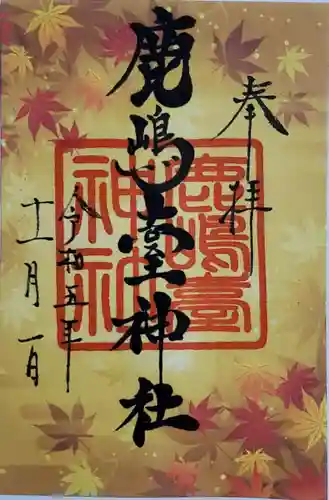 奉拝
鹿嶋臺神社
鹿嶋臺
神社
令和五年
十一月一日